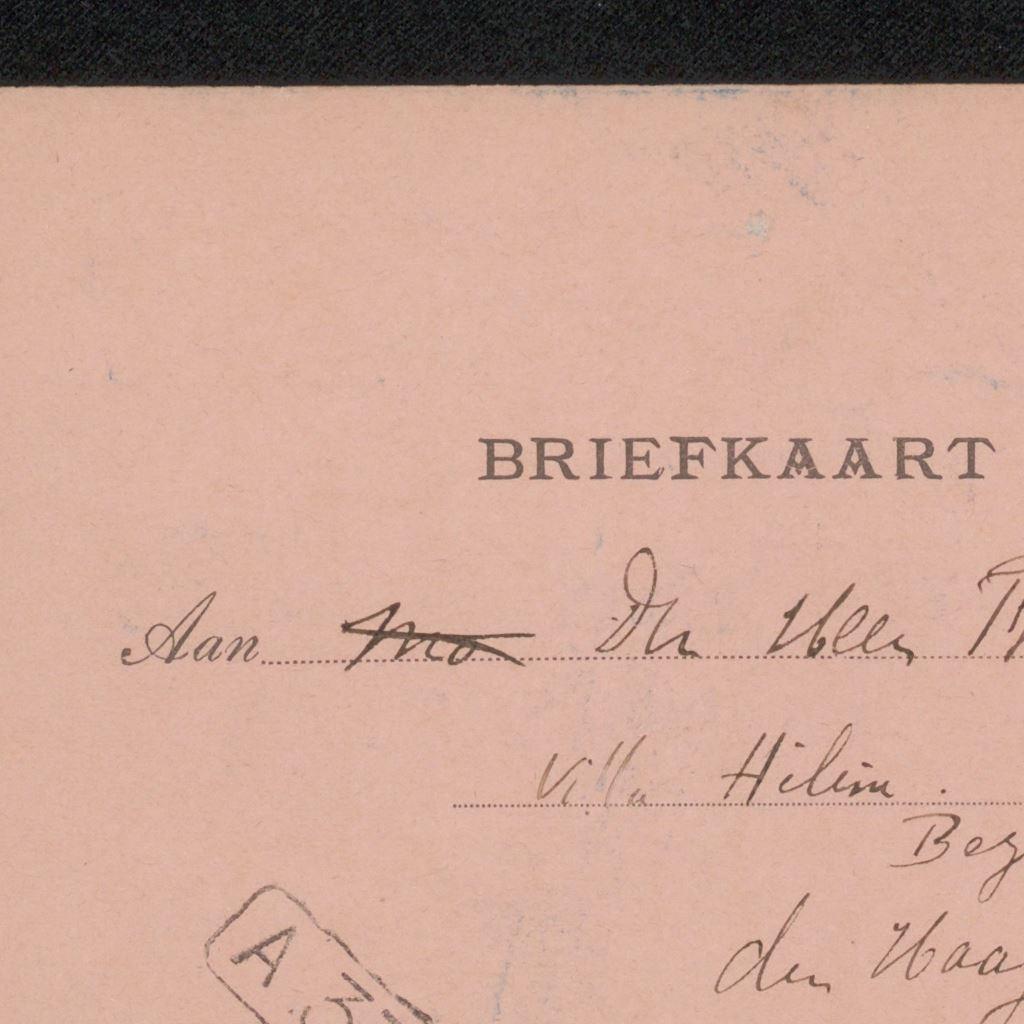 BRIEFKAART
Aan Den Heer
Villa Hilim.
Bez
den Haag
A 3